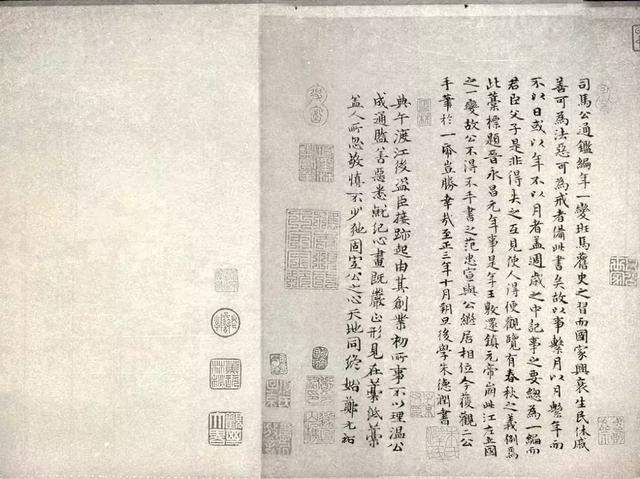 司馬公通鑑編年一變班馬舊史之習而國家興衰生民休戚
善可為法惡可為戒者備此書矣故以事繫月以月繫年而
不以日或以年不以月者盖週歲之中記事之要總為一編而
君臣父子是非得失之互見使人得便觀覽有春秋之義例焉
此藁標題晉永昌元年事是年王敦還鎮元帝崩此江左立國
之一變故公不得不手書之范忠宣與公繼居相位今復觀二公
手筆於一齋豈勝幸哉至正三年十月朔旦後學朱德潤書
典午渡江後盗臣接跡起由其創業初所事不以理溫公
成通監善惡悉就紀心畫既嚴正形見在藁紙藁
盖人所忽敬慎不少弛固宜公之心天地同終始鄭元祐